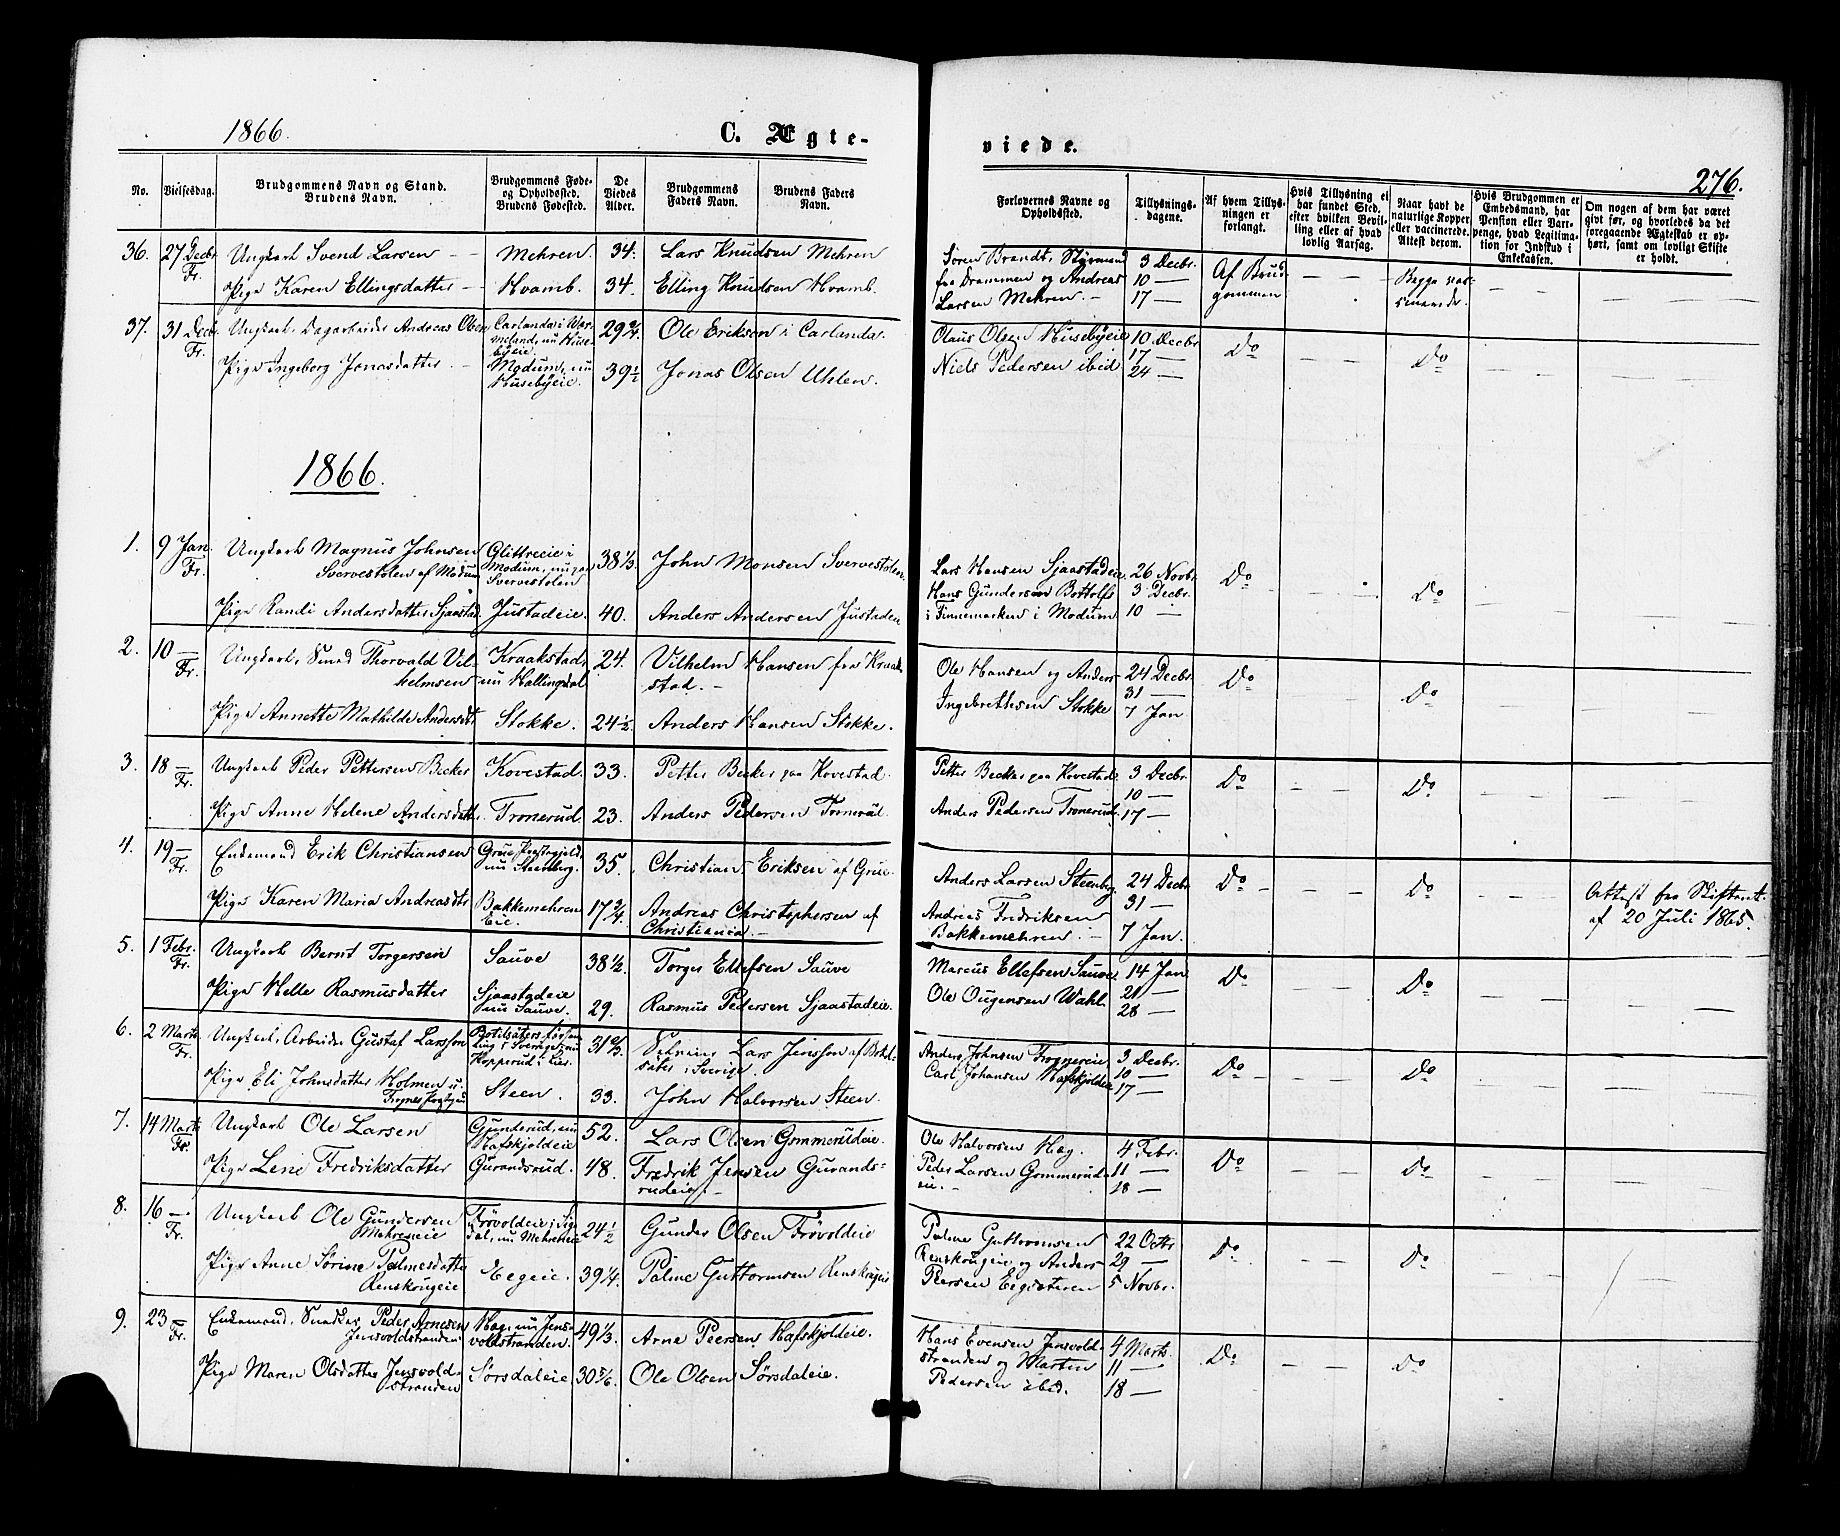 1866. C. Ægte-
viede.
276.
No. Vielsesdag. Brudgommens Navn og Stand. Brudens Navn. Brudgommens Føde- og Opholdssted. Brudens Fødested. De Viedes Alder. Brudgommens Faders Navn. Brudens Faders Navn.
Forlovernes Navne og Opholdssted. Tillysningsdagene. Af hvem Tillysningen er forlangt. Hvis Tillysning ei har fundet Sted, efter hvilken Bevilling eller af hvad lovlig Aarsag. Naar havt de naturlige Kopper eller vaccinerede. Attest derom. Hvis Brudgommen er Embedsmand, har Pension eller Vartpenge, hvad Legitimation for Indskud i Enkekassen. Om nogen af dem har været gift før, og hvorledes da det foregaaende Ægteskab er ophørt, samt om lovligt Skifte er holdt.
36. 27 Decbr. Ungkarl Svend Larsen Mehren. 34. Lars Knudsen Mehren Søren Brandt, Styrmand 3 Decbr. Af Brud- Begge vac-
Fr. Pige Karen Ellingsdatter Hvamb. 34. Elling Knudsen Hvamb. fra Drammen og Andreas 10 — gommen cinerede.
Larsen Mehren. 17 —
37. 31 Decbr. Ungkarl, Dagarbeider Andreas Olsen Carlanda i Wär- 29 3/4. Ole Eriksen i Carlanda. Olaus Olsen Husebyeie 10 Decbr. Do Do
Fr. meland, nu Huse- 17 —
byeie
Pige Ingeborg Jonasdatter Modum, nu 39 1/2 Jonas Olsen Uhlen. Niels Pedersen ibid 24 —
Husebyeie.
1866.
1. 9 Jan. Ungkarl Magnus Johnsen Glittreeie i 38 1/3. John Monsen Svervestolen. Lars Hansen Sjaastadeie 26 Novbr. Do Do
Fr. Svervestolen af Modum Modum, nu paa Hans Gundersen Bottolfs 3 Decbr.
Svervestolen
Pige Randi Andersdatter Sjaastad. Justadeie. 40. Anders Andersen Justadeie i Finnemarken i Modum 10 —
2. 10 — Ungkarl, Smed Thorvald Vil- Kraakstad, 24. Vilhelm Hansen fra Kraak- Ole Hansen og Anders 24 Decbr. Do Do
Fr. helmsen nu Hallingdal stad. 31 —
Pige Annette Mathilde Andersdt. Stokke. 24 1/2. Anders Hansen Stokke. Ingebrethsen Stokke 7 Jan
3. 18 — Ungkarl Peder Pettersen Becker Kovestad. 33. Petter Becker paa Kovestad. Petter Becker paa Kovestad. 3 Decbr. Do Do
Fr. 10 —
Pige Anne Helene Andersdatter. Tronerud. 23. Anders Pedersen Tronerud. Anders Pedersen Tronerud. 17 —
4. 19 — Enkemand Erik Christiansen Grue Præstegjeld 35. Christian Eriksen af Grue. Anders Larsen Steenberg 24 Decbr. Do Do Attest fra Skifteret
Fr. nu Steenberg. 31 — af 20 Juli 1865.
Pige Karen Maria Andreasdtr Bakkemehren 17 3/4. Andreas Christophersen af Andreas Fredriksen
Eie. Christiania. Bakkemehren. 7 Jan.
5. 1 Febr. Ungkarl Bernt Torgersen Sauve 38 1/2. Torger Ellefsen Sauve Marcus Ellefsen Sauve 14 Jan Do Do
Fr. 21 —
Pige Helle Rasmusdatter Sjaastadeie 29. Rasmus Pedersen Sjaastadeie. Ole Ougensen Wahl. 28 —
nu Sauve.
6. 2 Marts Ungkarl, Arbeider Gustaf Larsson Botilsäters försam 31 2/3. Lars Jensson af Botil- Anders Johnsen Fronereie 3 Decbr. Do Do
Fr. ling i Sverige, nu säter i Sverige. Carl Johansen Hafskjoldeie 10 —
Hopperud i Lier.
Pige Eli Johnsdatter Holmen i Steen. 33. John Halvorsen Steen. 17 —
7. 14 Marts Ungkarl Ole Larsen Gunderud, nu 52. Lars Olsen Gommerudeie. Ole Halvorsen Hæg. 4 Febr. Do Do
Fr. Hafskjoldeie Peder Larsen Gommerud- 11 —
Pige Lene Fredriksdatter Gurandsrud. 48. Fredrik Jensen Gurands- eie. 18 —
rudeie.
8. 16 — Ungkarl Ole Gundersen Frövoldeie i Sig- 24 1/2 Gunder Olsen Frövoldeie Palme Guttormsen 22 Octbr Do Do
Fr. Mehreneie dal, nu Mehreneie Renskougeie og Anders 29 —
Pige Anne Sørine Palmesdatter Hegeie. 39 1/4. Palme Guttormsen Renskougeie Peersen 5 Novbr.
Renskougeie
9. 23 — Enkemand, Snedker Peder Arnesen Hæg, nu Jens- 49 1/3. Arne Peersen Hafskjoldeie. Hans Evensen Jensvold- 4 Marts. Do Do
Fr. Jensvoldstranden voldstranden. stranden og Marten 11 —
Pige Maren Olsdatter Jensvold- Sørsdaleie. 30 5/6. Ole Olsen Sørsdaleie. Pedersen ibid. 18 —
stranden